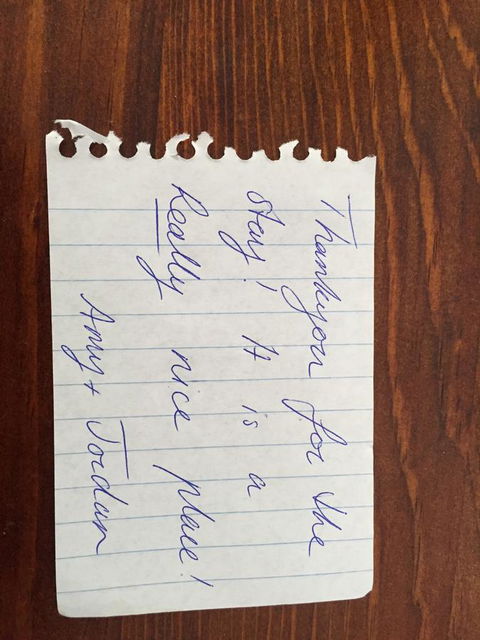 Thankyou for the
stay! It is a
Really nice place!
Amy + Jordan